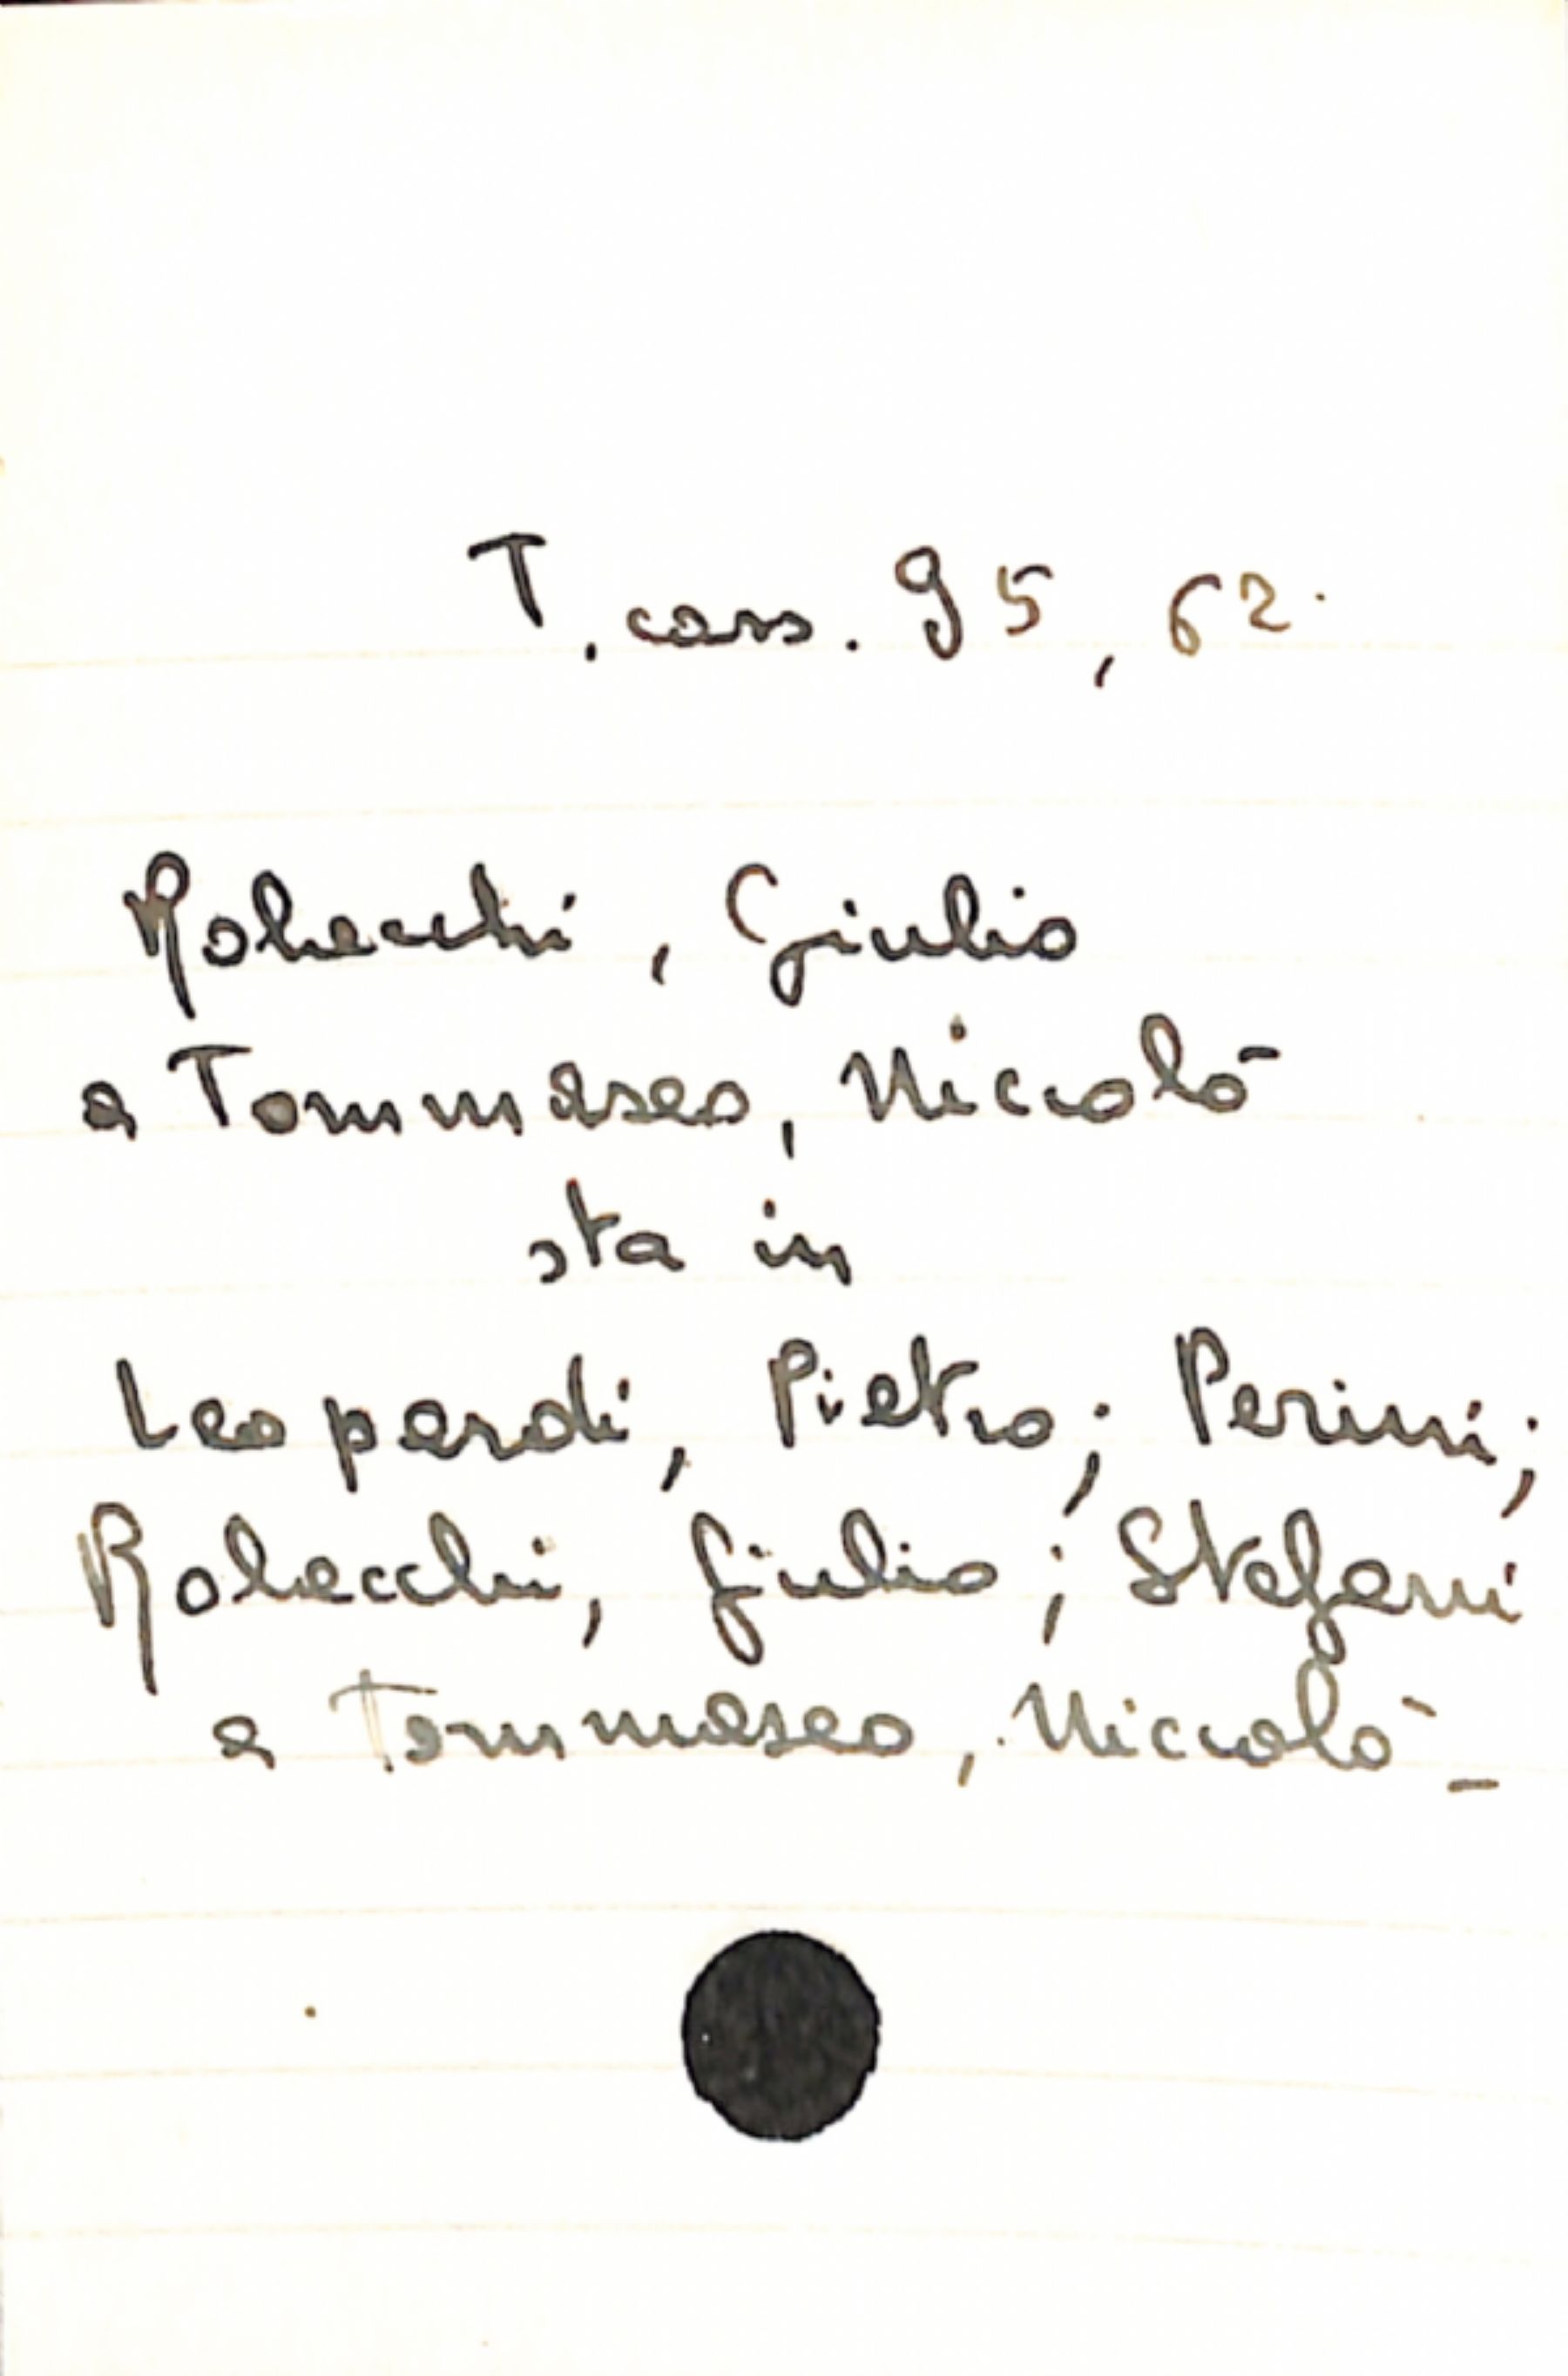 T. cass. 95, 62.
Robecchi, Giulio
a Tommaseo, Niccolò
sta in
Leopardi, Pietro; Perini;
Robecchi, Giulio; Stefani
a Tommaseo, Niccolò -